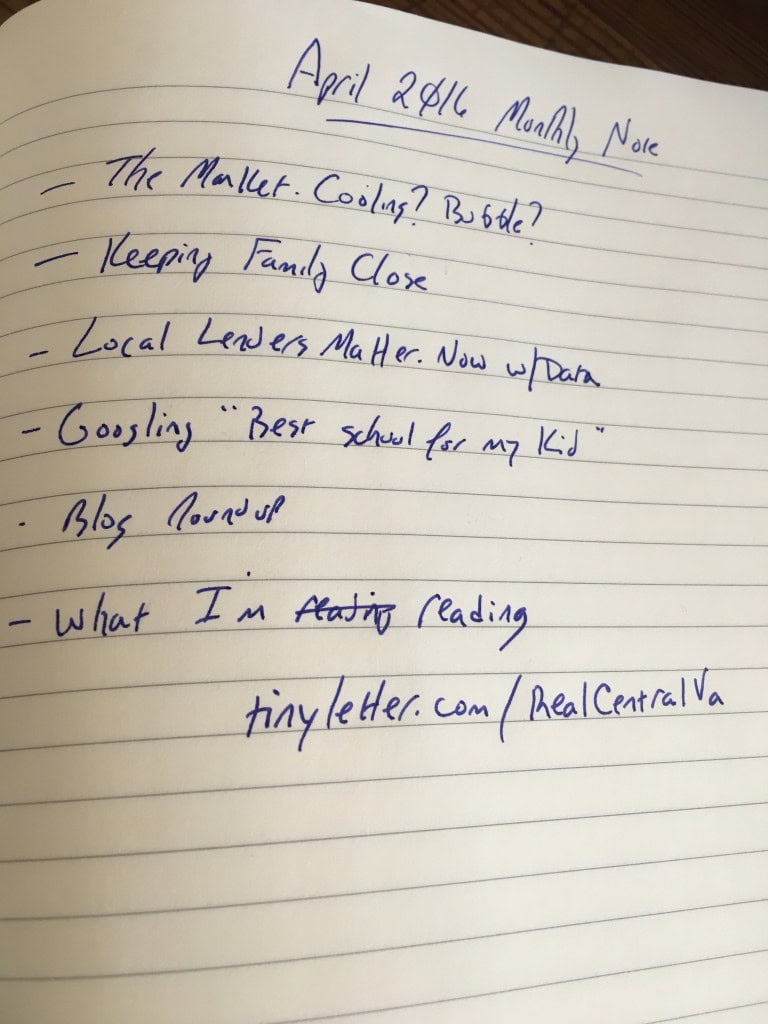 April 2016 Monthly Note
- The Market. Cooling? Bubble?
- Keeping Family Close
- Local Lenders Matter. Now w/Data
- Googling "Best school for my Kid"
- Blog Roundup
- What I'm reading reading
tinyletter.com/RealCentralVa